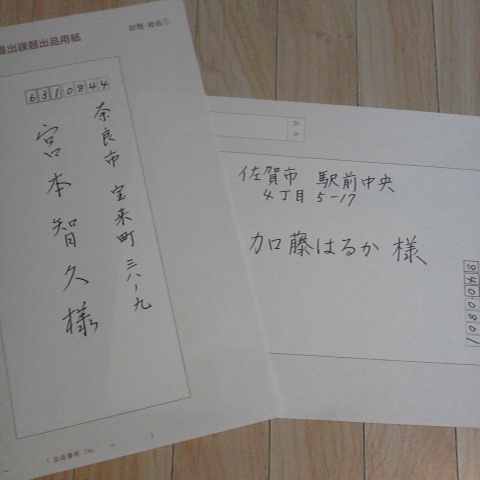 提出課題出品用紙
封筒・宛名①
6310844
奈良市 宝来町 三八ー九
宮本智久様
(出品番号 No. ー )
佐賀市 駅前中央
4丁目 5-17
加藤はるか 様
8400801